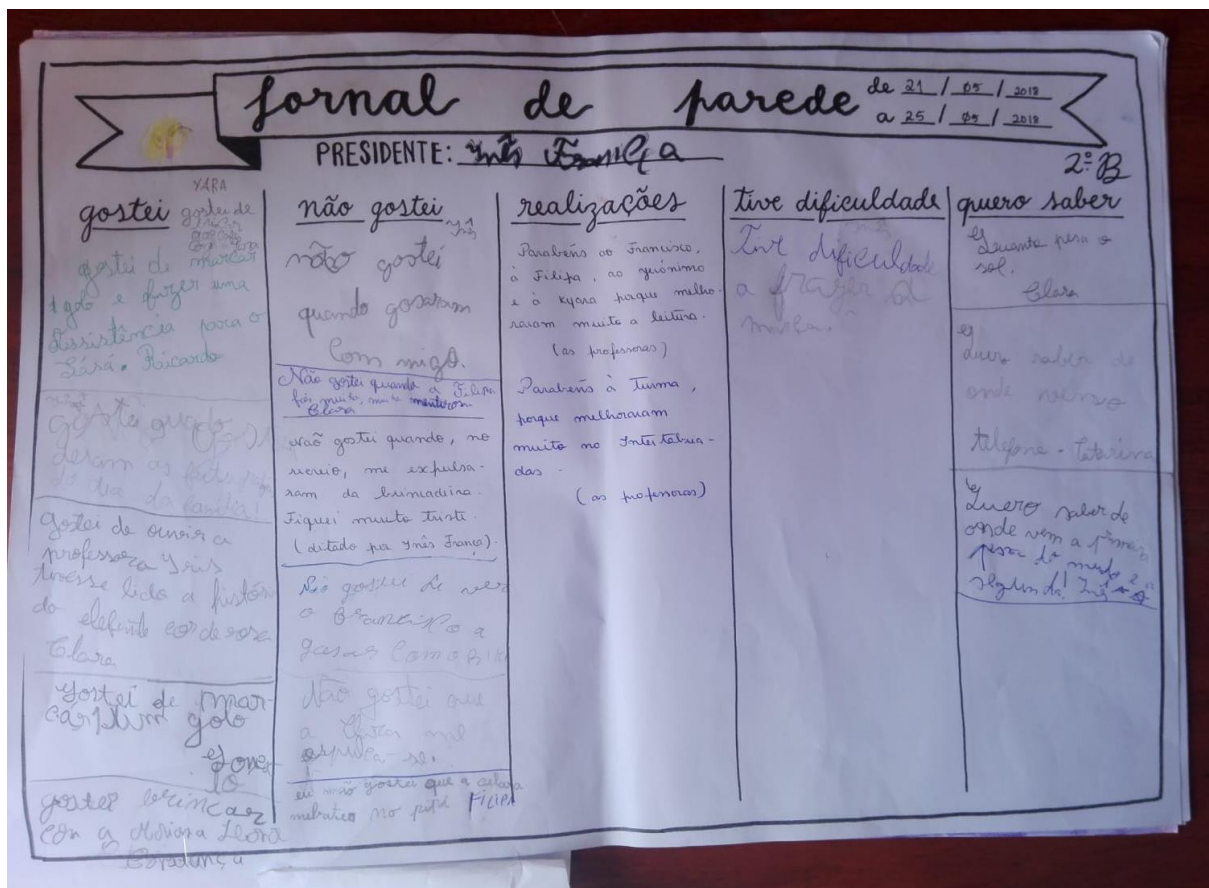 Jornal de parede
de 21 / 05 / 2018
a 25 / 05 / 2018
PRESIDENTE: Inês
2º B
gostei
YARA
gostei de
gostei de marcar
1 golo e fazer uma
assistência para o
Sásá. Ricardo
gostei
deram as
do dia da família!
Gostei de ouvir a
professora Iris
tivesse lido a história
do elefante cor de rosa
Clara
Gostei de mar-
car 1 um golo
gostei brincar
con a Mariana Leonor
não gostei
Inês
não gostei
quando gosaram
Com migo.
Não gostei quando a Filipa
foi muito, muito mentirosa
Clara
Não gostei quando, no
recreio, me expulsa-
ram da brincadeira.
Fiquei muito triste.
(ditado por Inês França).
Não gostei de ver
o Francisco a
gosar com a
Não gostei que
a Yara me
eu não gostei que a clara
no FiLiPA
realizações
Parabéns ao Francisco,
à Filipa, ao Jerónimo
e à Kyara porque melho-
raram muito a leitura.
(as professoras)
Parabéns à Turma,
porque melhoraram
muito no Inter tabua-
das.
(as professoras)
tive dificuldade
Tive dificuldade
a
quero saber
Quanto pesa o
sol.
Clara
Quero saber de
onde veio o
telefone - Catarina
Quero saber de
onde vem a primeira
pesoa do mundo e a
segunda! Inês